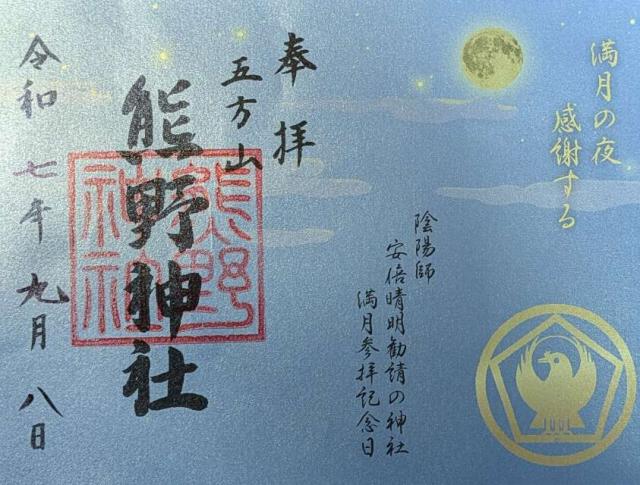 満月の夜
感謝する
陰陽師
安倍晴明勧請の神社
満月参拝記念日
奉拝
五方山
熊野神社
熊野
神社
令和七年九月八日